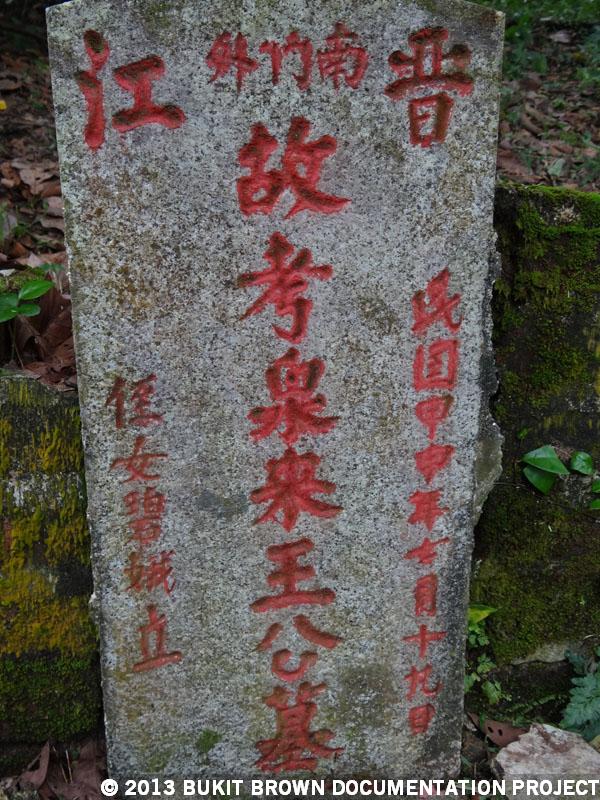 晋江
南門外
民国甲申年七月十九日
故考泉来王公墓
侄女碧娥立
© 2013 BUKIT BROWN DOCUMENTATION PROJECT